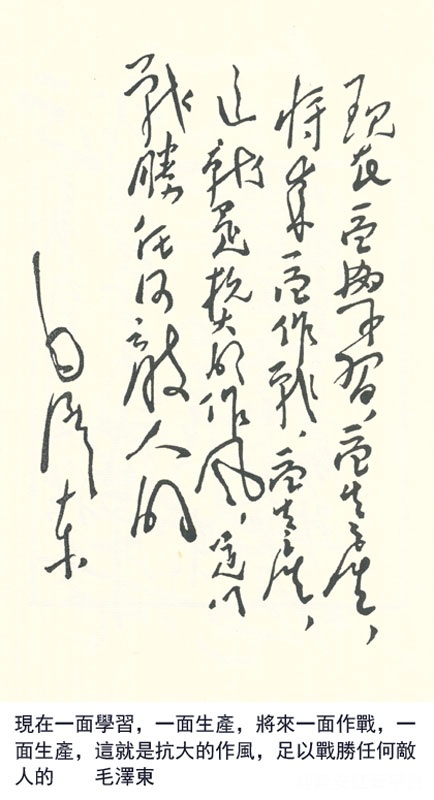 現在一面學習，一面生產，
將來一面作戰，一面生產，
這就是抗大的作風，足以
戰勝任何敵人的
毛澤東
現在一面學習，一面生產，將來一面作戰，一
面生產，這就是抗大的作風，足以戰勝任何敵
人的　　毛澤東